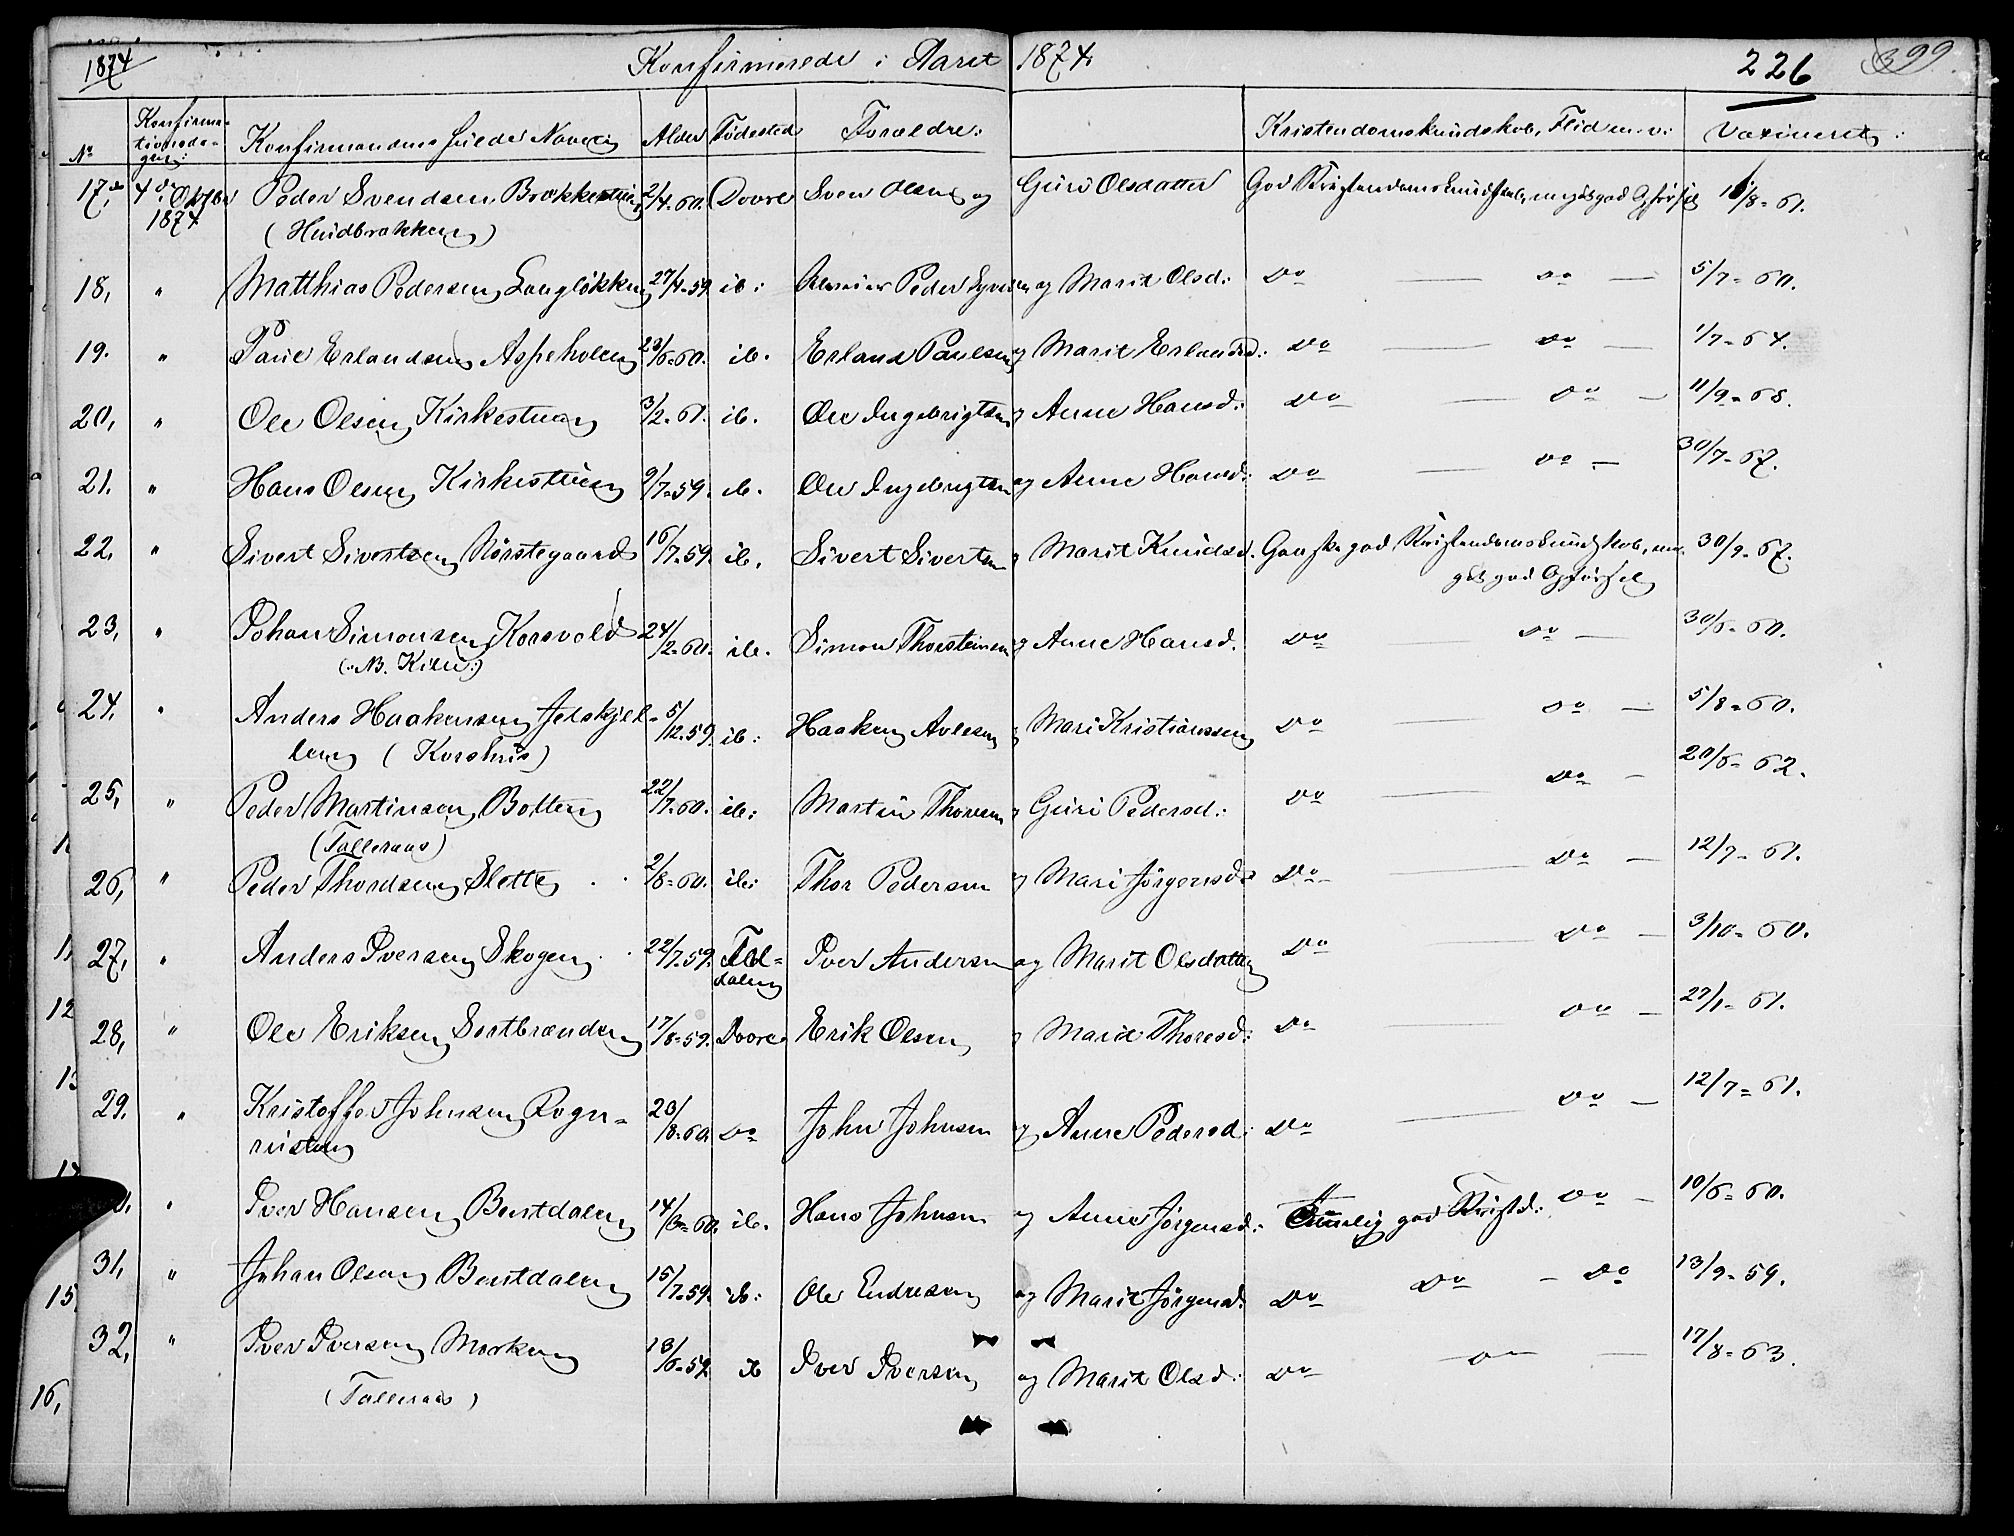 1874 Konfirmerede i Aaret 1874. 226 399
No Konfirmationsdagen: Konfirmandens fulde Navn: Alder Fødested Forældre: Kristendomskundskab, Flid m.v: Vaxineret:
17, 4de Oktbr Peder Svendsen Brækkestuen 2/4-60. Dovre Sven Olsen og Guri Olsdatter God Kristendomskundskab, meget god Opførsel 1/8-61.
1874 (Hundbrækken)
18, " Matthias Pedersen Langløkken 27/4-59. ib: Peder Syversen og Marit Olsd: Do — Do — 5/7-60.
19. " Paul Erlandsen Aspeholen 23/6-60. ib. Erland Paulsen og Marit Erlandsd: Do — Do — 1/7-64.
20, " Ole Olsen Kirkestuen 3/2-61. ib. Ole Ingebrigtsen og Anne Hansd: Do — Do — 11/9-68.
21. " Hans Olsen Kirkestuen 9/7-59. ib. Ole Ingebrigtsen og Anne Hansd: Do — Do — 30/7-67.
22. " Sivert Sivertsen Nørstegaard 16/7-59. ib. Sivert Sivertsen og Marit Knudsd. Ganske god Kristendomskundskab, me- 30/9-67.
get god Opførsel
23, " Johan Simonsen Korsvold 24/2-60. ib. Simon Thorsteinsen og Anne Hansd. Do — Do — 30/6-60.
(N. Kilen:)
24. " Anders Haakensen Jelskjel- 5/12-59. ib: Haaken Avlesen og Mari Kristiansen Do — Do — 5/8-60.
len (Korshus)
25, " Peder Martinsen Botten 22/7-60. ib: Martin Thoresen og Guri Pedersd: Do — Do — 20/6-62.
(Talleraas)
26, " Peder Thordsen Slette 2/8-60. ib: Thor Pedersen og Mari Jørgensd: Do — Do — 12/7-61.
27, " Anders Iversen Skogen 22/7-59. Fol-
dalen Iver Andersen og Marit Olsdatter Do — Do — 3/10-60.
28, " Ole Eriksen Sortbrænden 17/8-59. Dovre Erik Olsen og Marit Thoresd: Do — Do — 27/1-61.
29. " Kristoffer Johnsen Rogn- 20/8-60 Do John Johnsen og Anne Pedersd: Do — Do — 12/7-61.
rusten
" Iver Hansen Bentdalen 14/3-60. ib. Hans Johnsen og Anne Jørgensd: Temmelig god Kristd: Do — 10/6-60.
31, " Johan Olsen Bentdalen 15/7-59. ib: Ole Endresen og Marit Jørgensd: Do Do — Do 13/9-59.
32, " Iver Iversen Morken 18/6-59 ib Iver Iversen og Marit Olsd: Do — Do — 17/8-63.
(Talleraas)
12
15,
16,